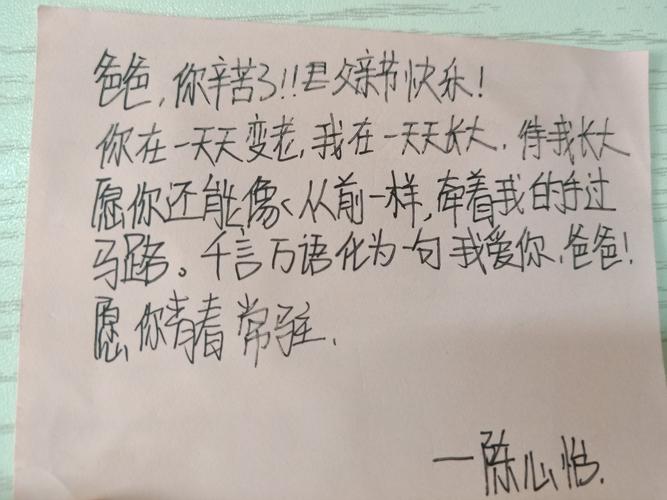 爸爸，你辛苦了!!父亲节快乐!
你在一天天变老，我在一天天长大，待我长大
愿你还能像从前一样，牵着我的手过
马路。千言万语化为一句我爱你，爸爸!
愿你青春常驻.
—陈心怡.